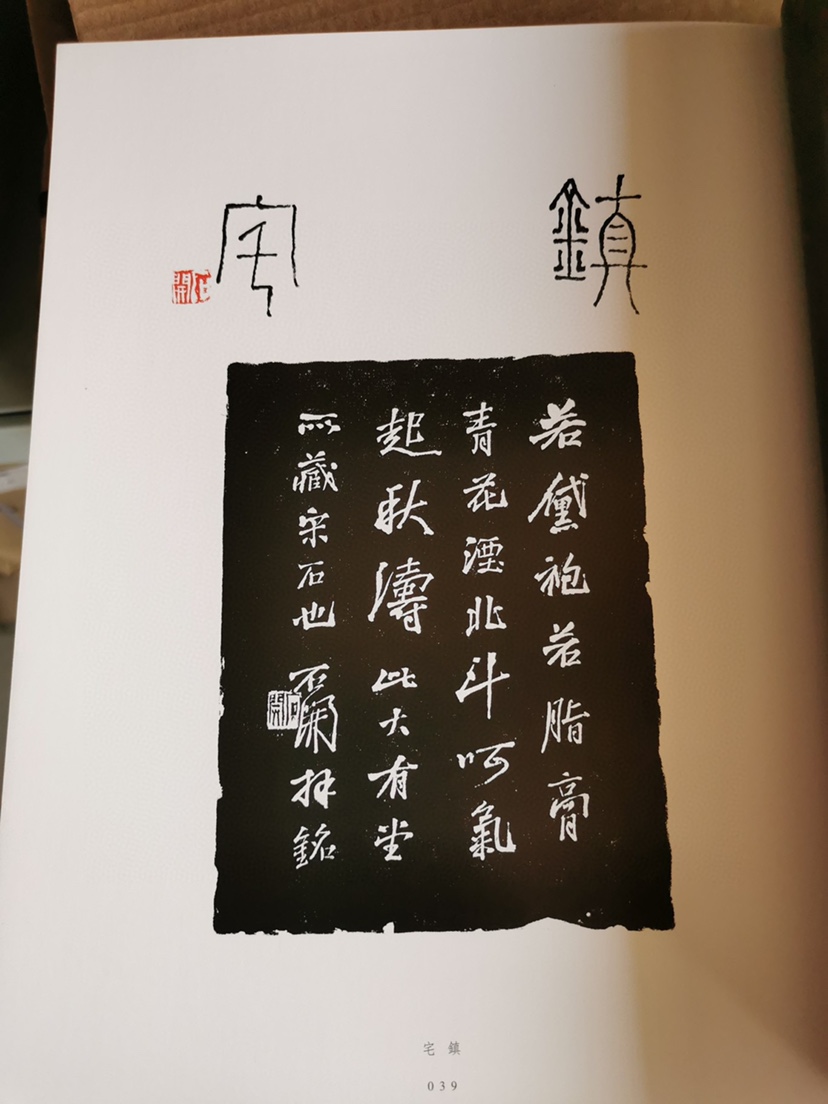 鎮宅
石開
若黛袍若脂膏
青花湮北斗呵氣
起秋濤此大有堂
所藏宋石也石開拜銘
石開
宅鎮
039